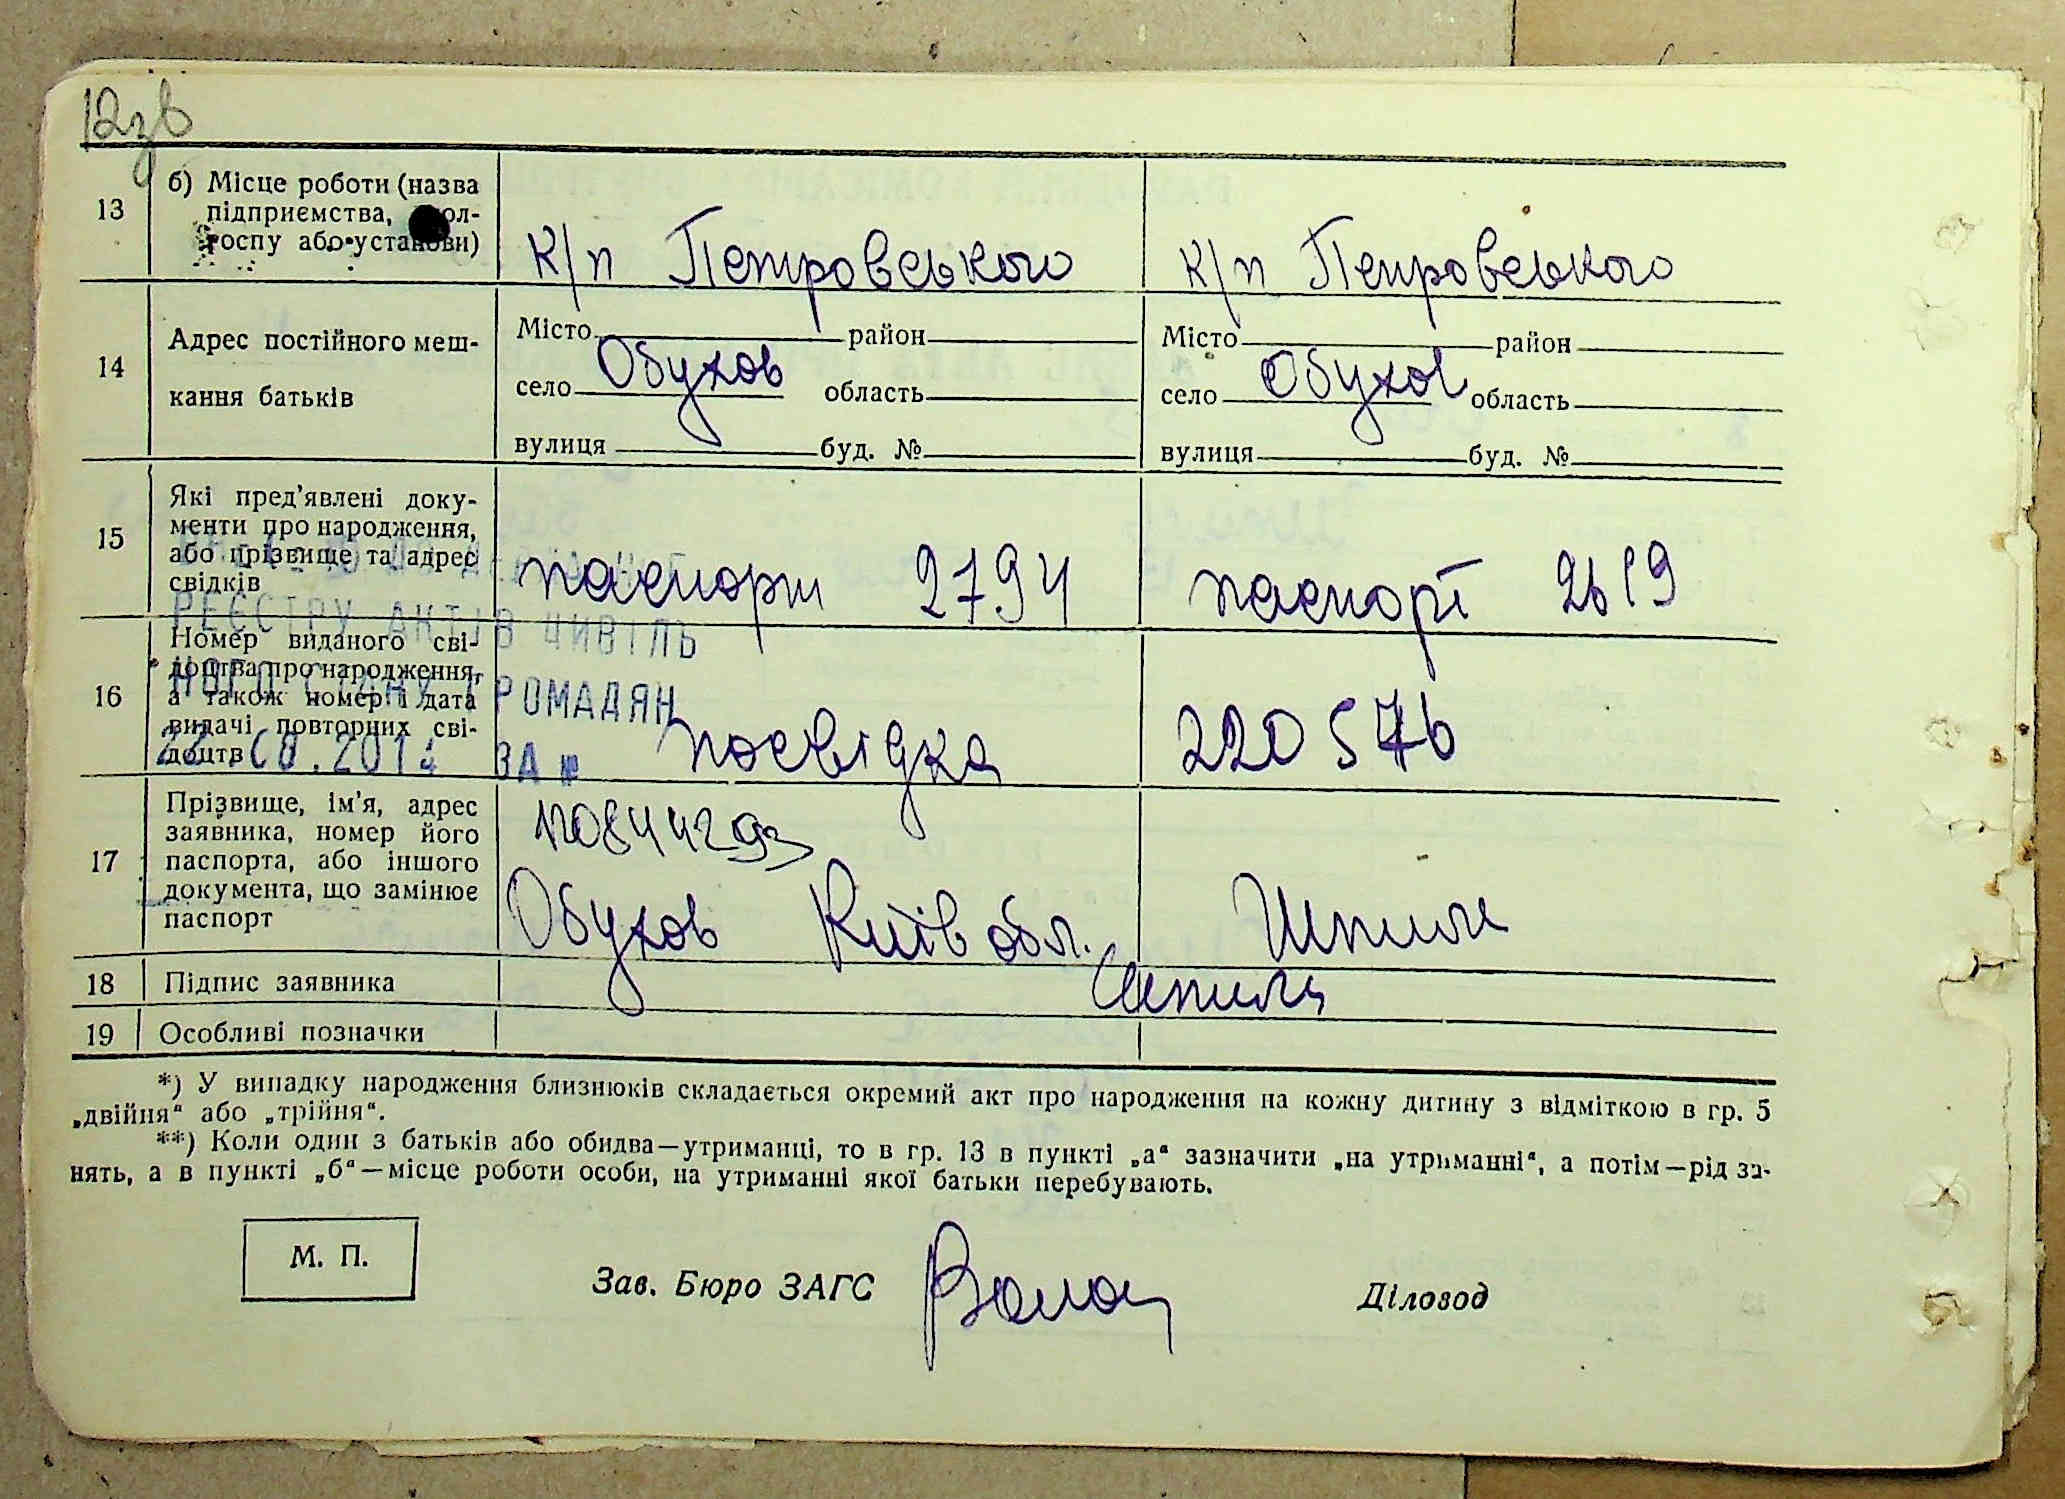 12зв
13
б) Місце роботи (назва
підприємства, кол-
госпу або установи)
к/п Петровського
к/п Петровського
14
Адрес постійного меш-
кання батьків
Місто район
село Обухов область
вулиця буд. №
Місто район
село Обухов область
вулиця буд. №
15
Які пред'явлені доку-
менти про народження,
або прізвище та адрес
свідків
паспорт 2794
паспорт 2619
РЕЄСТРУ АКТІВ ЦИВІЛЬ
НОГО СТАНУ ГРОМАДЯН
ЗА №
16
Номер виданого сві-
доцтва про народження,
а також номер і дата
видачі повторних сві-
доцтв
посвідка
220576
17
Прізвище, ім'я, адрес
заявника, номер його
паспорта, або іншого
документа, що замінює
паспорт
Обухов Київ обл.
18
Підпис заявника
19
Особливі позначки
*) У випадку народження близнюків складається окремий акт про народження на кожну дитину з відміткою в гр. 5
„двійня“ або „трійня“.
**) Коли один з батьків або обидва—утриманці, то в гр. 13 в пункті „а“ зазначити „на утриманні“, а потім—рід за-
нять, а в пункті „б“—місце роботи особи, на утриманні якої батьки перебувають.
М. П.
Зав. Бюро ЗАГС
Діловод